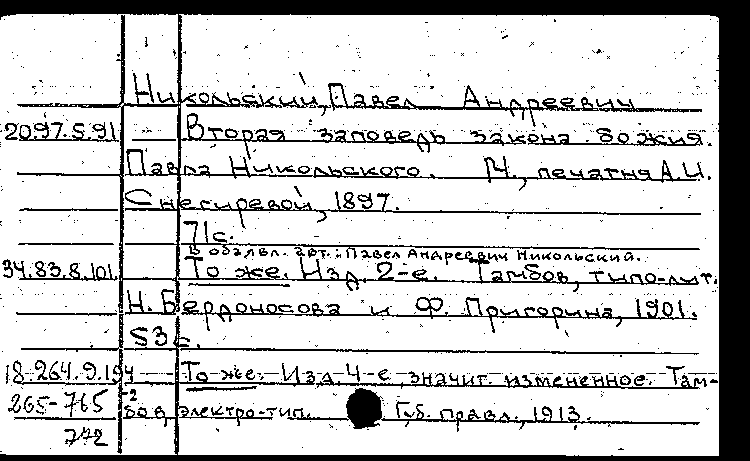 Никольский, Павел Андреевич
20.97.5.91 Вторая заповедь закона божия.
Павла Никольского. М., печатня А.И.
Снегиревой, 1897.
71с.
В объявл. авт.: Павел Андреевич Никольский.
34.83.8.101. То же. Изд. 2-е. Тамбов, типо-лит.
Н. Бердоносова и Ф. Пригорина, 1901.
53с.
18.264.9.194 То же. Изд. 4-е, значит. измененное. Там-
265-765 -2 бов, электро-тип. Губ. правл., 1913.
772